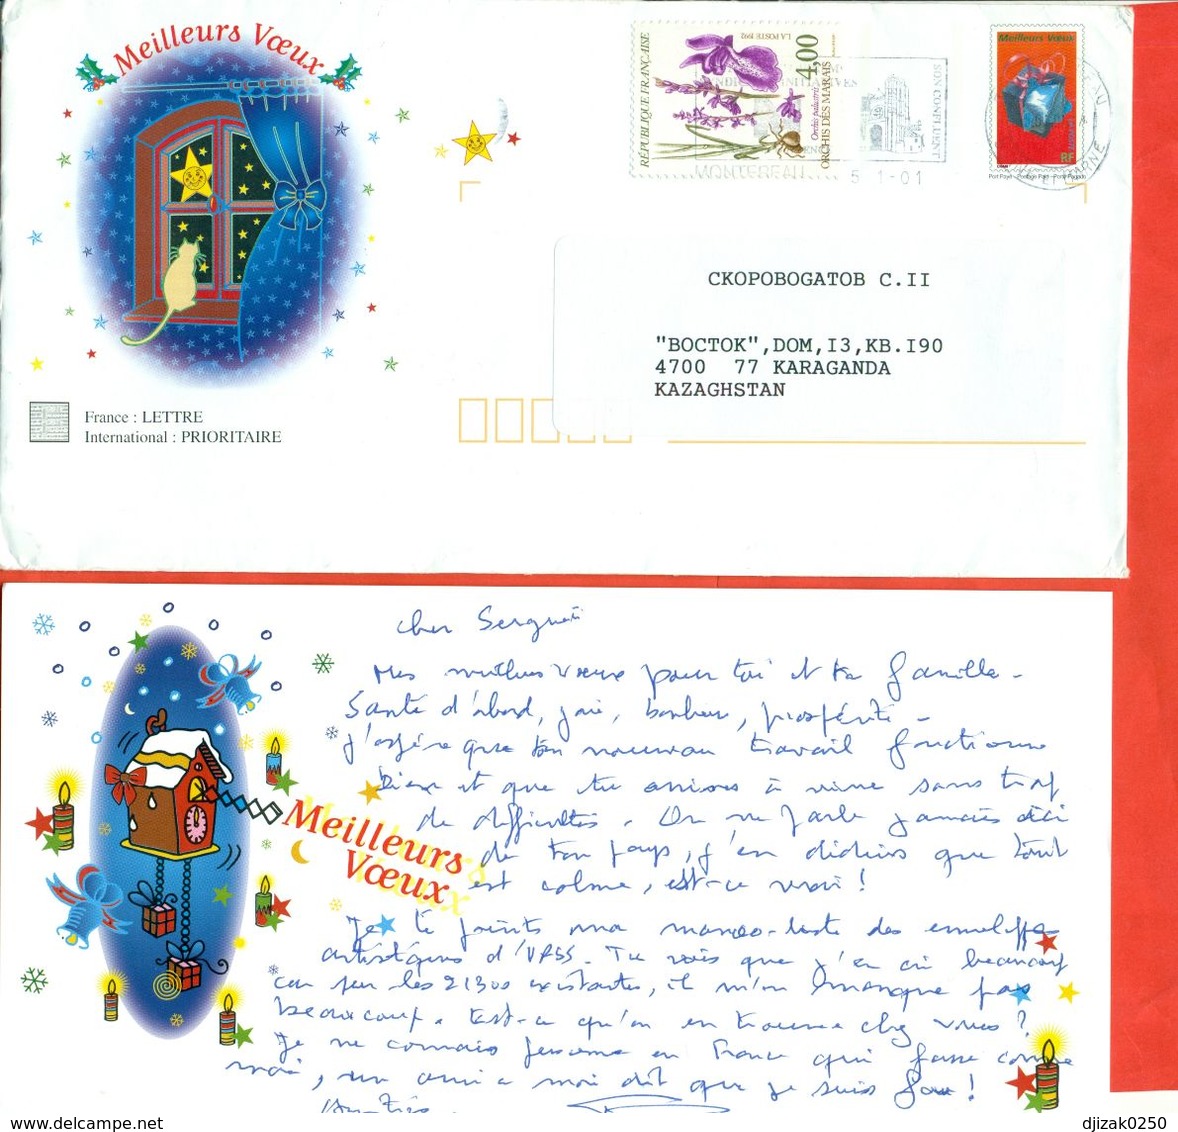 Meilleurs Vœux
RÉPUBLIQUE FRANÇAISE
LA POSTE 1992
4,00
Orchis palustris
ORCHIS DES MARAIS
MONTEREAU
5 1-01
SON CONFLUENT
MARNE
Meilleurs Vœux
RF
Port Payé - Postage Paid - Porte Pagado
СКОРОВОГАТОВ С.II
"ВОСТОК",DOM,I3,KB.I90
4700 77 KARAGANDA
KAZAGHSTAN
France : LETTRE
International : PRIORITAIRE
cher Sergueï
Mes meilleurs vœux pour toi et ta famille -
Santé d'abord, joie, bonheur, prospérité -
J'espère que ton nouveau travail fonctionne
bien et que tu arrives à vivre sans trop
de difficultés. On ne parle jamais ici
de ton pays, j'en déduis que tout
est calme, est-ce vrai !
Meilleurs
Vœux
Je te joins ma manco-liste des enveloppes
artistiques d'URSS. Tu vois que j'en ai beaucoup
car sur les 21300 existantes, il m'en manque pas
beaucoup. Est-ce qu'on en trouve chez vous ?
Je ne connais personne en France qui fasse comme
moi, un ami a moi dit que je suis fou !
djizak0250